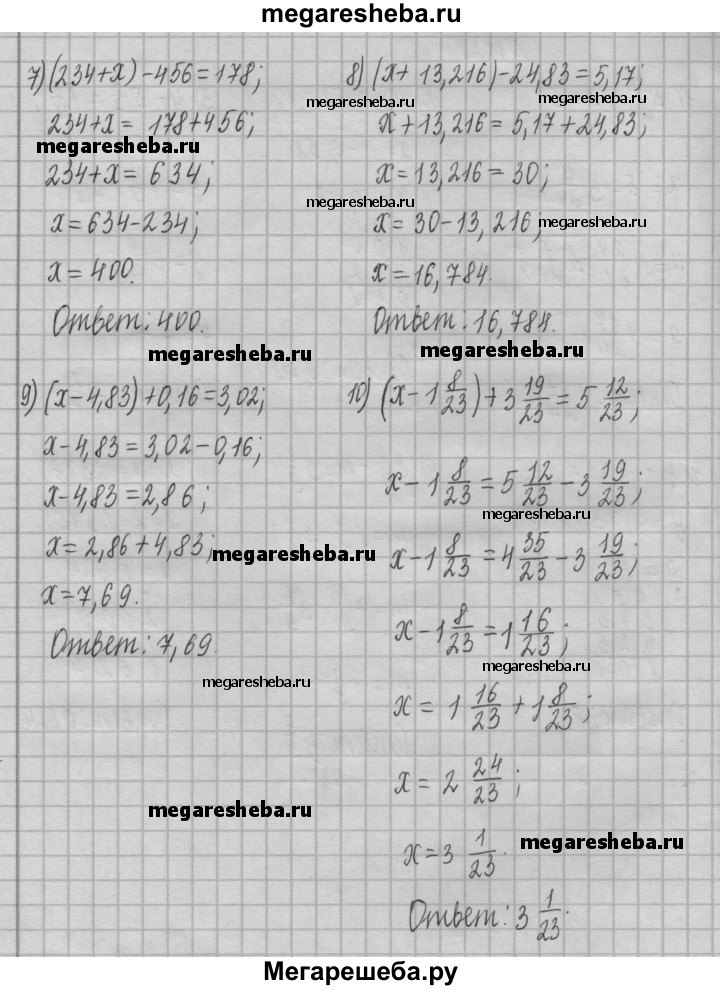 megaresheba.ru
7) (234+x)-456=178;
234+x= 178+456;
megaresheba.ru
234+x= 634;
x=634-234;
x=400.
Ответ: 400.
megaresheba.ru
8) (x+13,216)-24,83=5,17;
megaresheba.ru megaresheba.ru
x+13,216=5,17+24,83;
x=13,216=30;
megaresheba.ru megaresheba.ru
x=30-13,216;
x=16,784.
Ответ: 16,784.
megaresheba.ru
9) (x-4,83)+0,16=3,02;
x-4,83=3,02-0,16;
x-4,83=2,86;
x=2,86+4,83;
megaresheba.ru
x=7,69.
Ответ: 7,69.
megaresheba.ru
megaresheba.ru
10) (x-1 8/23)+3 19/23=5 12/23;
x-1 8/23=5 12/23-3 19/23;
megaresheba.ru
x-1 8/23=4 35/23-3 19/23;
x-1 8/23=1 16/23;
megaresheba.ru
x= 1 16/23+1 8/23;
x=2 24/23;
x=3 1/23.
megaresheba.ru
Ответ: 3 1/23.
Мегарешеба.ру